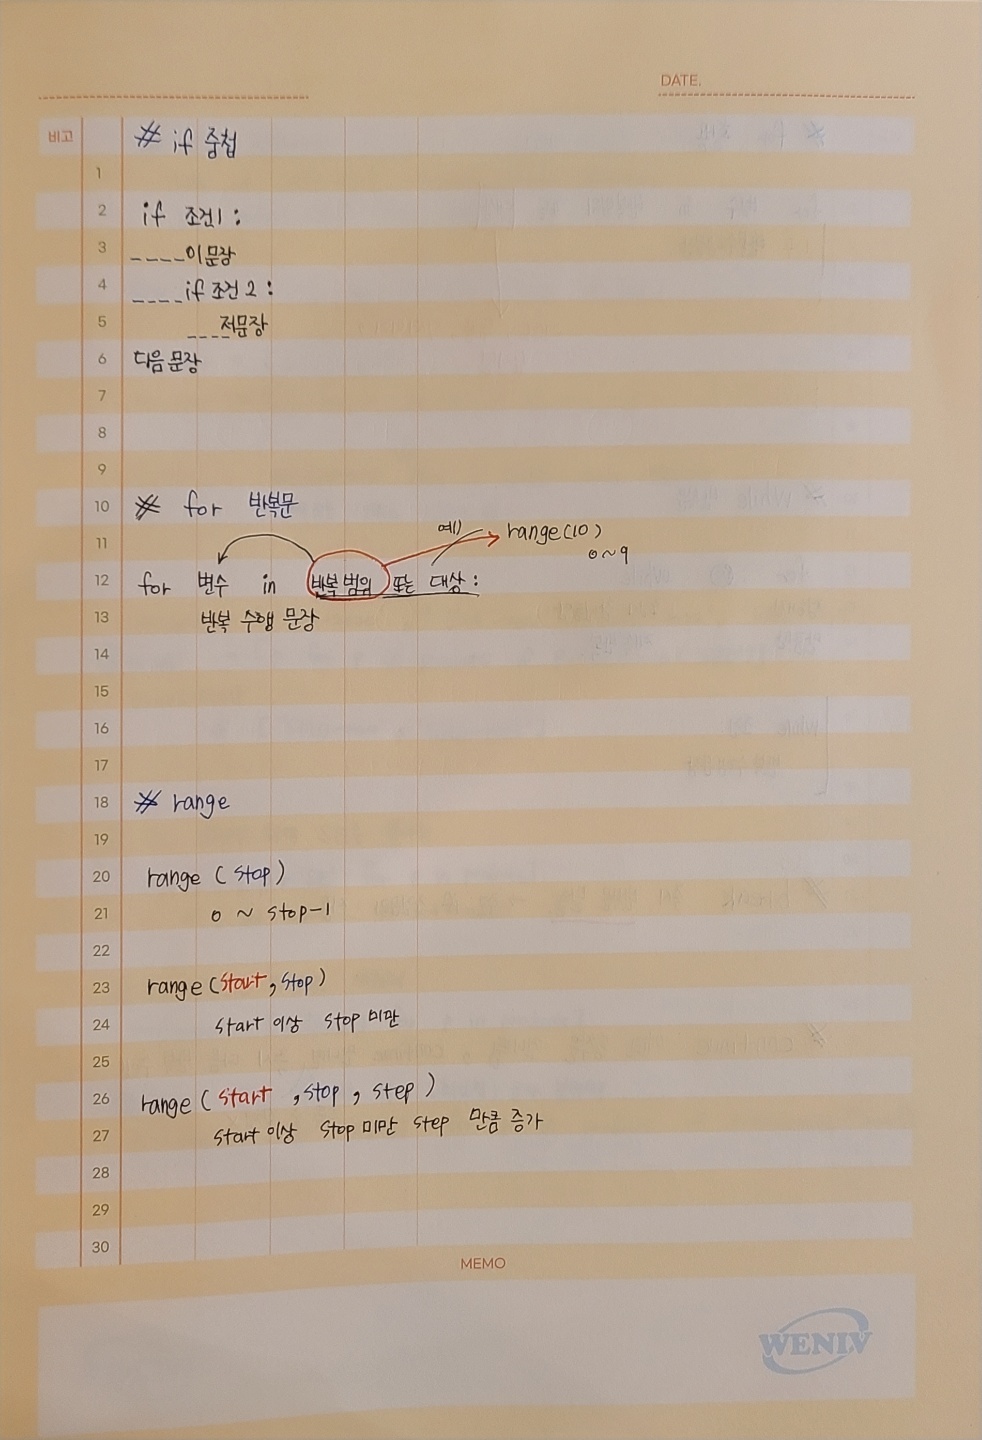 DATE.
비고
# if 중첩
1
2 if 조건1 :
3 ----이문장
4 ----if 조건 2 :
5 ----저문장
6 다음 문장
7
8
9
10 # for 반복문
11 예) range(10)
0~9
12 for 변수 in 반복 범위 또는 대상 :
13 반복 수행 문장
14
15
16
17
18 # range
19
20 range ( stop )
21 0 ~ stop-1
22
23 range ( start , stop )
24 start 이상 stop 미만
25
26 range ( start , stop , step )
27 start 이상 stop 미만 step 만큼 증가
28
29
30
MEMO
WENIV